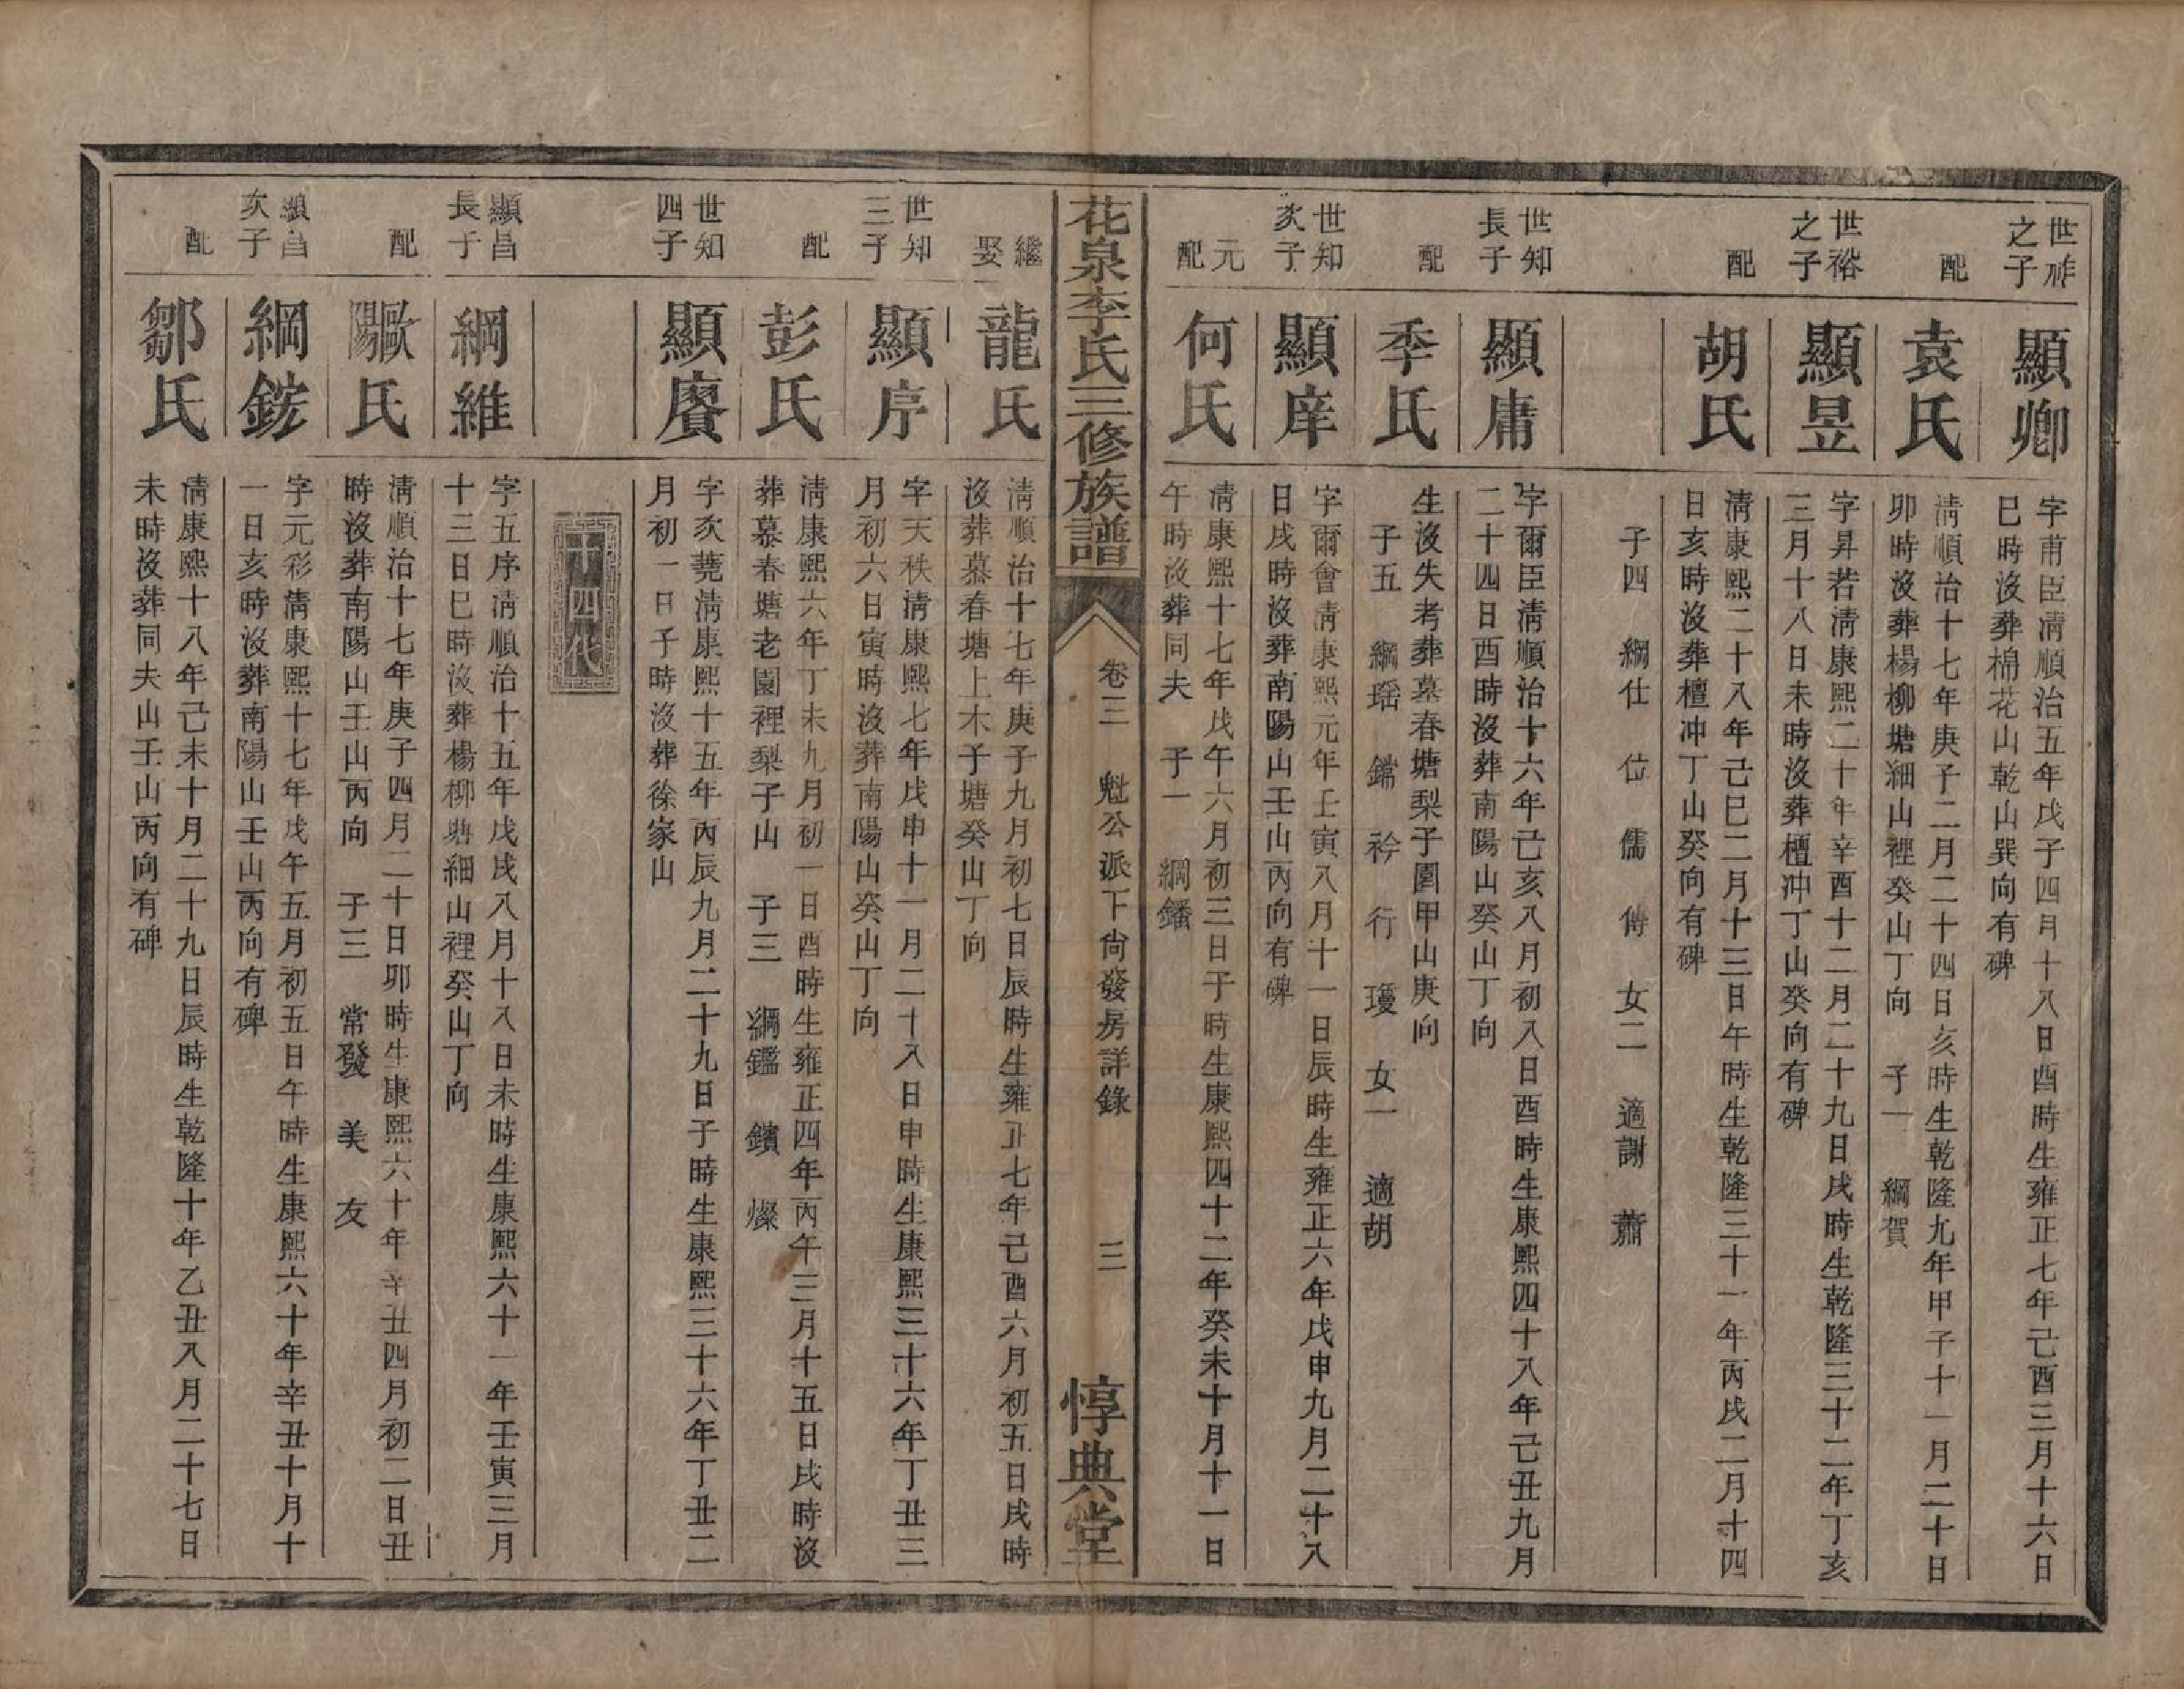 世祚
之子
顯卿
字甫臣清順治五年戊子四月十八日酉時生雍正七年己酉三月十六日
巳時沒葬棉花山乾山巽向有碑
配
袁氏
清順治十七年庚子二月二十四日亥時生乾隆九年甲子十一月二十日
卯時沒葬楊柳塘細山裡癸山丁向　子一　綱賀
世裕
之子
顯昱
字昇若清康熙二十年辛酉十二月二十九日戌時生乾隆三十二年丁亥
三月十八日未時沒葬檀冲丁山癸向有碑
配
胡氏
清康熙二十八年己巳二月十三日午時生乾隆三十一年丙戌二月十四
日亥時沒葬檀冲丁山癸向有碑
子四　綱仕　位　儒　傅　女二　適謝　蕭
世知
長子
顯庸
字爾臣清順治十六年己亥八月初八日酉時生康熙四十八年己丑九月
二十四日酉時沒葬南陽山癸山丁向
配
季氏
生沒失考葬墓春塘梨子園甲山庚向
子五　綱瑶　鐺　衿　行　瓊　女一　適胡
世知
次子
顯庠
字爾會清康熙元年壬寅八月十一日辰時生雍正六年戊申九月二十八
日戌時沒葬南陽山壬山丙向有碑
元
配
何氏
清康熙十七年戊午六月初三日子時生康熙四十二年癸未十月十一日
午時沒葬同夫　子一　綱鐇
花泉李氏三修族譜
卷三　魁公派下尙發房詳錄　三
惇典堂
繼
娶
龍氏
清順治十七年庚子九月初七日辰時生雍正七年己酉六月初五日戌時
沒葬慕春塘上木子塘癸山丁向
世知
三子
顯序
字天秩清康熙七年戊申十一月二十八日申時生康熙三十六年丁丑三
月初六日寅時沒葬南陽山癸山丁向
配
彭氏
清康熙六年丁未九月初一日酉時生雍正四年丙午三月十五日戌時沒
葬慕春塘老園裡梨子山　子三　綱鑑　鑌　燦
世知
四子
顯賡
字次蕘清康熙十五年丙辰九月二十九日子時生康熙三十六年丁丑二
月初一日子時沒葬徐家山
十四代
顯昌
長子
綱維
字五序清順治十五年戊戌八月十八日未時生康熙六十一年壬寅三月
十三日巳時沒葬楊柳塘細山裡癸山丁向
配
歐陽氏
清順治十七年庚子四月二十日卯時生康熙六十年辛丑四月初二日丑
時沒葬南陽山壬山丙向　子三　常發　美　友
顯昌
次子
綱鋐
字元彩清康熙十七年戊午五月初五日午時生康熙六十年辛丑十月十
一日亥時沒葬南陽山壬山丙向有碑
配
鄒氏
清康熙十八年己未十月二十九日辰時生乾隆十年乙丑八月二十七日
未時沒葬同夫山壬山丙向有碑